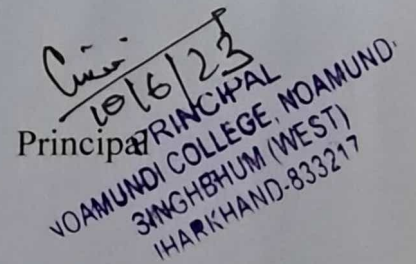 10/6/23
Principal
PRINCIPAL
NOAMUNDI COLLEGE, NOAMUND
SINGHBHUM (WEST)
JHARKHAND-833217